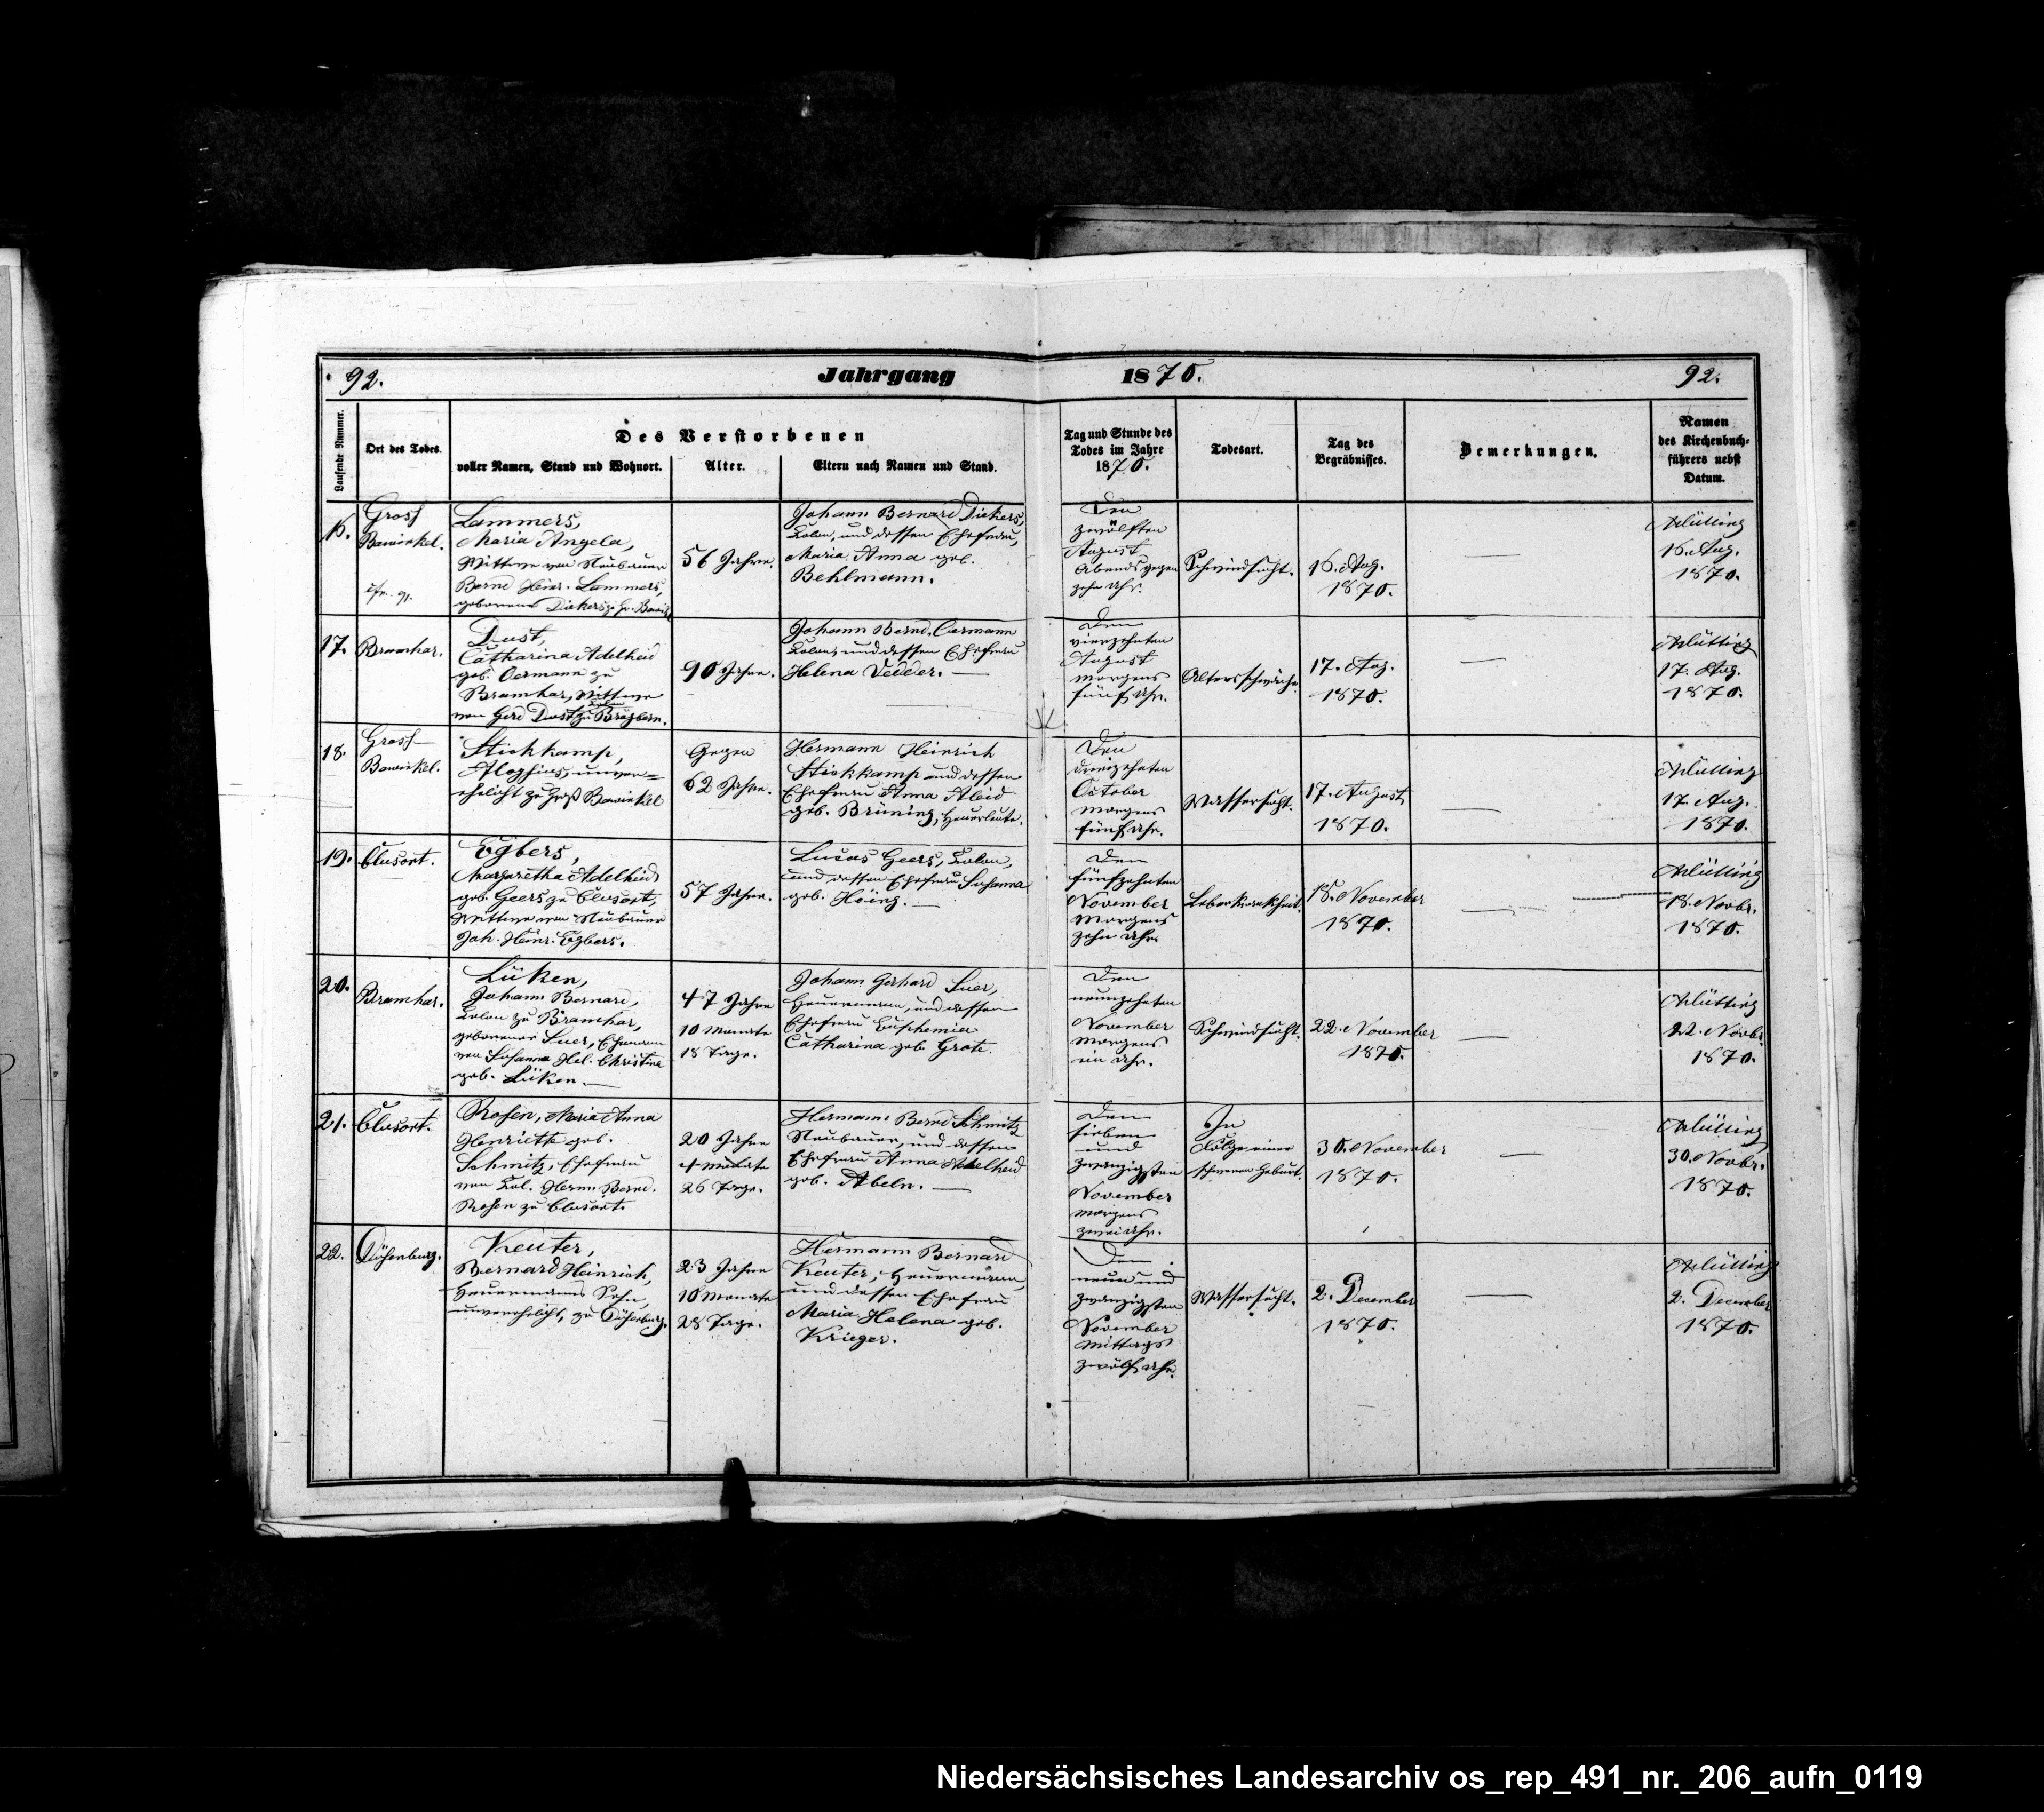 92.
Jahrgang
1870.
92.
Laufende Nummer.
Ort des Todes.
Des Verstorbenen
voller Namen, Stand und Wohnort.
Alter.
Eltern nach Namen und Stand.
Tag und Stunde des
Todes im Jahre
1870.
Todesart.
Tag des
Begräbnisses.
Bemerkungen.
Namen
des Kirchenbuch-
führers nebst
Datum.
16.
Gross
Bawinkel.
Lammers,
Maria Angela,
Wittwe von Neubauer
Bernd Heinr. Lammers,
geborene Diekers zu Gr. Bawinkel
56 Jahre.
Johann Bernard Diekers,
Kolon, und dessen Ehefrau,
Maria Anna geb.
Behlmann.
Den
zwölften
August
Abends gegen
zehn Uhr.
Schwindsucht.
16. Aug.
1870.
—
16. Aug.
1870.
17.
Bramhar.
Dust,
Catharina Adelheid
geb. Oermann zu
Bramhar, Wittwe
von Gerd Dust, Kolon zu
90 Jahre.
Johann Bernd. Oermann
Kolon, und dessen Ehefrau
Helena Vedder. —
Den
vierzehnten
August
morgens
fünf Uhr.
Altersschwäche.
17. Aug.
1870.
—
17. Aug.
1870.
18.
Gross-
Bawinkel.
Stiekkamp,
Aloysius, unver=
ehelicht zu Groß Bawinkel
Gegen
62 Jahre.
Hermann Heinrich
Stiekkamp und dessen
Ehefrau Anna Aleid
geb. Brüning, Heuerleute.
Den
dreizehnten
October
morgens
fünf Uhr.
Wassersucht.
17. August
1870.
—
17. Aug.
1870.
19.
Clusort.
Egbers,
Margaretha Adelheid
geb. Geers zu Clusort,
Wittwe von Neubauer
Joh. Heinr. Egbers.
57 Jahre.
Lucas Geers, Kolon,
und dessen Ehefrau Susanna
geb. Höing. —
Den
fünfzehnten
November
Morgens
zehn Uhr.
Leberkrankheit.
18. November
1870.
—
18. Novbr.
1870.
20.
Bramhar.
Lüken,
Johann Bernard,
Kolon zu Bramhar,
geborener Suer, Ehemann
von Susanna Hel. Christina
geb. Lüken. —
47 Jahre
10 Monate
18 Tage.
Johann Gerhard Suer,
Heuermann, und dessen
Ehefrau Euphemia
Catharina geb. Grote.
Den
neunzehnten
November
morgens
ein Uhr.
Schwindsucht.
22. November
1870.
—
22. Novbr.
1870.
21.
Clusort.
Rosen, Maria Anna
Henriette geb.
Schmitz, Ehefrau
von Kol. Herm. Bernd.
Rosen zu Clusort.
20 Jahre
4 Monate
26 Tage.
Hermann Bernd Schmitz
Neubauer, und dessen
Ehefrau Anna Adelheid
geb. Abeln. —
Den
sieben
und
zwanzigsten
November
morgens
zwei Uhr.
In
Folge einer
schweren Geburt.
30. November
1870.
—
30. Novbr.
1870.
22.
Duisenburg.
Keuter,
Bernard Heinrich,
Heuermanns Sohn,
unverehelicht, zu Duisenburg.
23 Jahre
10 Monate
28 Tage.
Hermann Bernard
Keuter, Heuermann,
und dessen Ehefrau
Maria Helena geb.
Krieger.
Den
neun und
zwanzigsten
November
Mittags
zwölf Uhr.
Wassersucht.
2. December
1870.
—
2. December
1870.
Niedersächsisches Landesarchiv os_rep_491_nr._206_aufn_0119